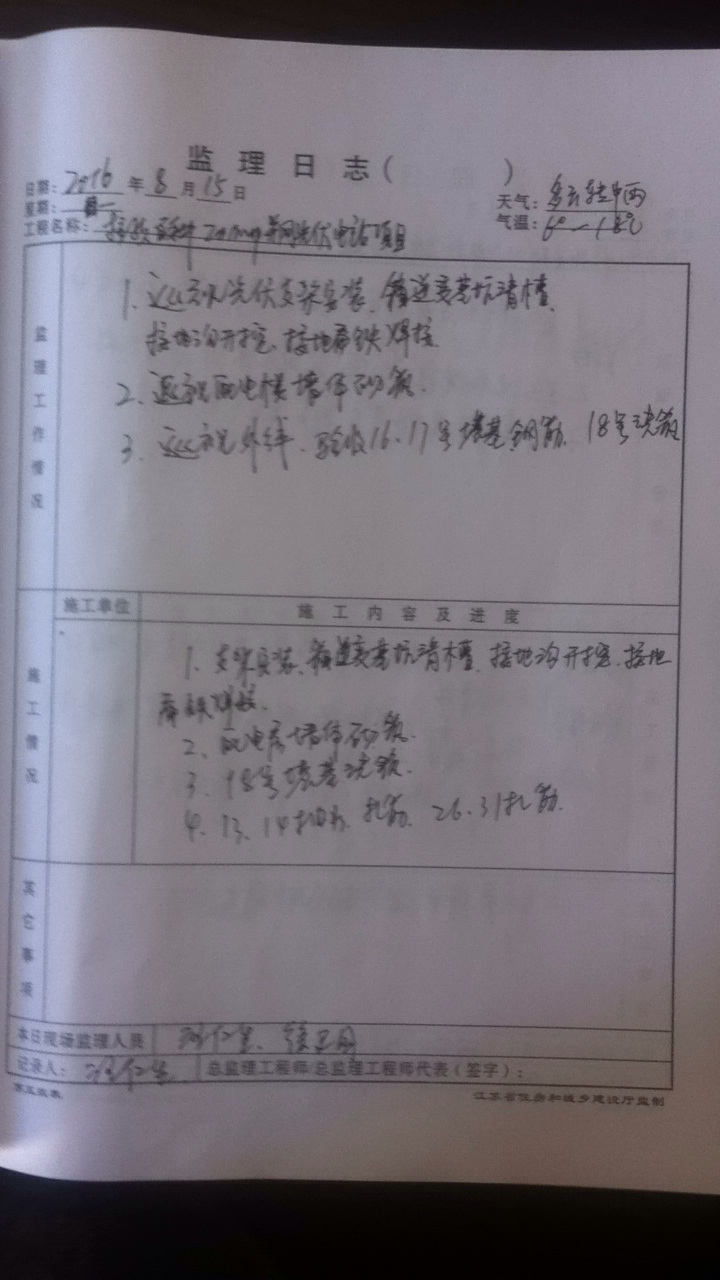 监理日志( )
日期: 2016 年 8 月 15 日
天气: 多云转中雨
星期: 一
气温: 6°~18℃
工程名称: 20MWp并网光伏电站项目
监理工作情况
1. 巡视光伏支架安装、箱逆变基坑清槽、
接地沟开挖、接地扁铁焊接
2、巡视配电楼墙体砌筑.
3、巡视外线、验收16、17号塔基钢筋、18号浇筑
施工单位 施工内容及进度
施工情况
1、支架安装、箱逆变基坑清槽、接地沟开挖、接地
扁铁焊接.
2、配电房墙体砌筑.
3、18号塔基浇筑.
4、13、14 扎筋、26、31扎筋.
其它事项
本日现场监理人员
记录人: 总监理工程师/总监理工程师代表(签字):
江苏省住房和城乡建设厅监制